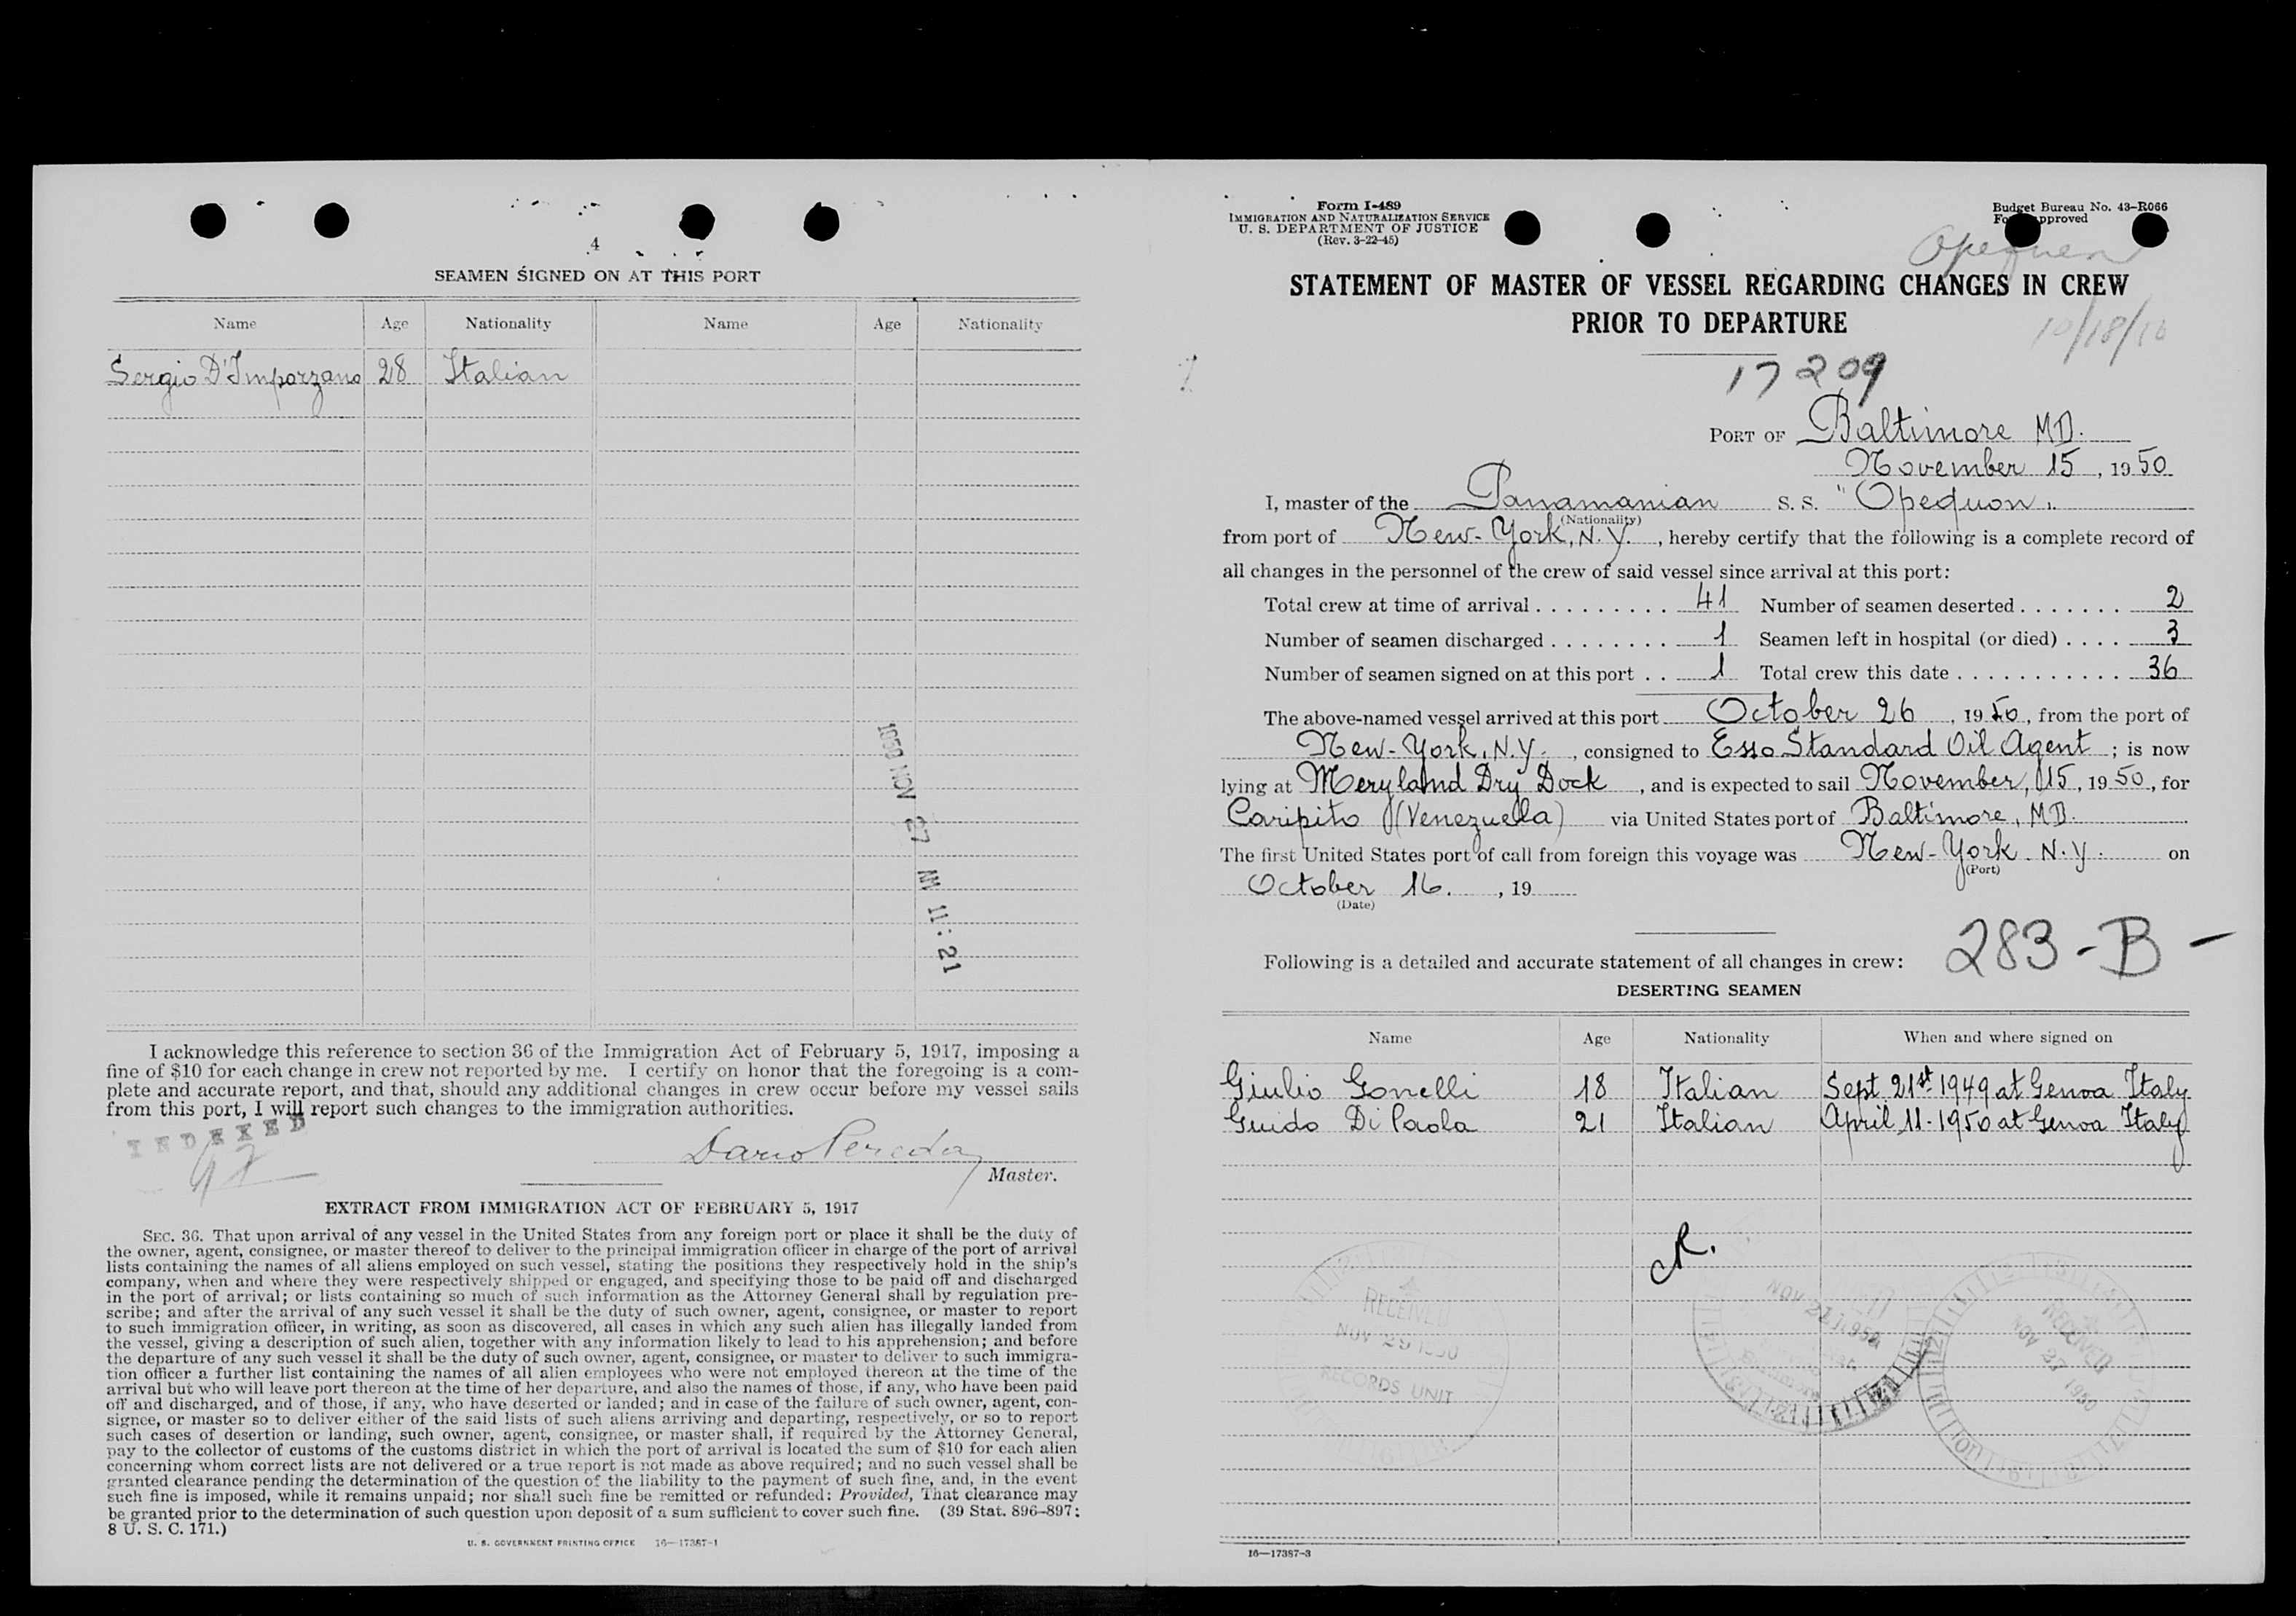 4
SEAMEN SIGNED ON AT THIS PORT
Name Age Nationality Name Age Nationality
Sergio D'Imporzano 28 Italian
1950 NOV 27 AM 11:21
I acknowledge this reference to section 36 of the Immigration Act of February 5, 1917, imposing a
fine of $10 for each change in crew not reported by me. I certify on honor that the foregoing is a com-
plete and accurate report, and that, should any additional changes in crew occur before my vessel sails
from this port, I will report such changes to the immigration authorities.
INDEXED
Dario
Master.
EXTRACT FROM IMMIGRATION ACT OF FEBRUARY 5, 1917
SEC. 36. That upon arrival of any vessel in the United States from any foreign port or place it shall be the duty of
the owner, agent, consignee, or master thereof to deliver to the principal immigration officer in charge of the port of arrival
lists containing the names of all aliens employed on such vessel, stating the positions they respectively hold in the ship's
company, when and where they were respectively shipped or engaged, and specifying those to be paid off and discharged
in the port of arrival; or lists containing so much of such information as the Attorney General shall by regulation pre-
scribe; and after the arrival of any such vessel it shall be the duty of such owner, agent, consignee, or master to report
to such immigration officer, in writing, as soon as discovered, all cases in which any such alien has illegally landed from
the vessel, giving a description of such alien, together with any information likely to lead to his apprehension; and before
the departure of any such vessel it shall be the duty of such owner, agent, consignee, or master to deliver to such immigra-
tion officer a further list containing the names of all alien employees who were not employed thereon at the time of the
arrival but who will leave port thereon at the time of her departure, and also the names of those, if any, who have been paid
off and discharged, and of those, if any, who have deserted or landed; and in case of the failure of such owner, agent, con-
signee, or master so to deliver either of the said lists of such aliens arriving and departing, respectively, or so to report
such cases of desertion or landing, such owner, agent, consignee, or master shall, if required by the Attorney General,
pay to the collector of customs of the customs district in which the port of arrival is located the sum of $10 for each alien
concerning whom correct lists are not delivered or a true report is not made as above required; and no such vessel shall be
granted clearance pending the determination of the question of the liability to the payment of such fine, and, in the event
such fine is imposed, while it remains unpaid; nor shall such fine be remitted or refunded: Provided, That clearance may
be granted prior to the determination of such question upon deposit of a sum sufficient to cover such fine. (39 Stat. 896–897;
8 U. S. C. 171.)
U. S. GOVERNMENT PRINTING OFFICE 16—17387-1
Form I-489
IMMIGRATION AND NATURALIZATION SERVICE
U. S. DEPARTMENT OF JUSTICE
(Rev. 3-22-45)
Budget Bureau No. 43–R066
approved
STATEMENT OF MASTER OF VESSEL REGARDING CHANGES IN CREW
PRIOR TO DEPARTURE
17209
PORT OF Baltimore MD.
November 15, 1950
I, master of the Panamanian S. S. "Opequon"
(Nationality)
from port of New-York, N.Y., hereby certify that the following is a complete record of
all changes in the personnel of the crew of said vessel since arrival at this port:
Total crew at time of arrival . . . . . . . . . . 41 Number of seamen deserted . . . . . . . 2
Number of seamen discharged . . . . . . . . 1 Seamen left in hospital (or died) . . . . 3
Number of seamen signed on at this port . . 1 Total crew this date . . . . . . . . . . . . 36
The above-named vessel arrived at this port October 26, 1950, from the port of
New-York, N.Y., consigned to Esso Standard Oil Agent; is now
lying at Meryland Dry Dock, and is expected to sail November, 15, 1950, for
Caripito (Venezuela) via United States port of Baltimore, MD.
The first United States port of call from foreign this voyage was New-York N.Y. on
(Port)
October 16., 19
(Date)
283-B-
Following is a detailed and accurate statement of all changes in crew:
DESERTING SEAMEN
Name Age Nationality When and where signed on
Giulio Gonelli 18 Italian Sept. 21st 1949 at Genoa Italy
Guido Di Paola 21 Italian April 11-1950 at Genoa Italy
RECEIVED
NOV 29 1950
RECORDS UNIT
NOV 27 1950
RECEIVED
NOV 27 1950
16—17387-3